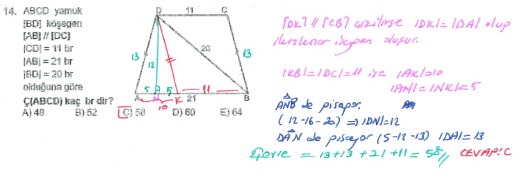 14. ABCD yamuk
[BD] köşegen
[AB] // [DC]
|CD| = 11 br
|AB| = 21 br
|BD| = 20 br
olduğuna göre
Ç(ABCD) kaç br dir?
A) 48 B) 52 C) 58 D) 60 E) 64
D 11 C
13 12 20 13
5 5 11
A N K 21 B
10
[DK] // [CB] çizilirse |DK|=|DA| olup
ikizkenar üçgen oluşur.
|KB|=|DC|=11 ise |AK|=10
|AN|=|NK|=5
DNB de pisagor.
(12-16-20) ⇒ |DN|=12
DAN de pisagor (5-12-13) |DA|=13
Çevre = 13+13+21+11=58// CEVAP:C